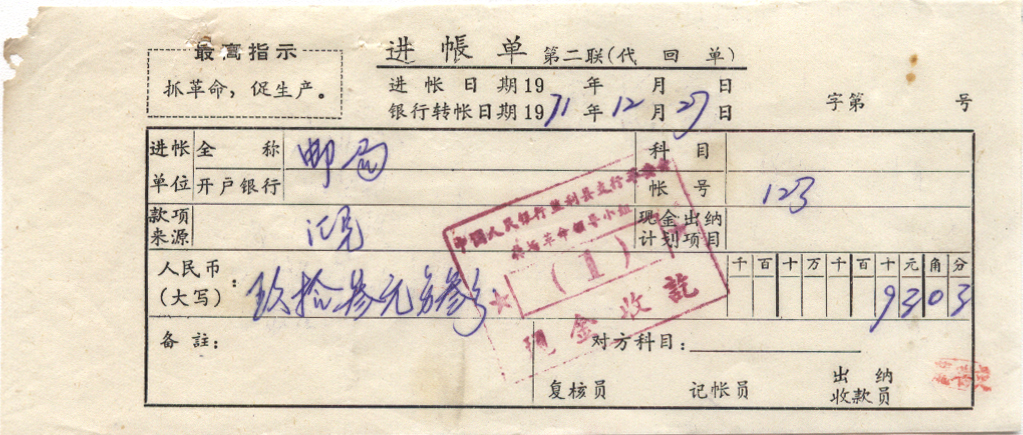 最高指示
抓革命，促生产。
进帐单 第二联（代回单）
进帐日期19 年 月 日
银行转帐日期1971年12月27日
字第 号
进帐单位 全称 邮局 科目
开户银行 帐号 123
款项来源 汇兑 现金出纳计划项目
人民币（大写）： 玖拾叁元 叁分
千百十万千百十元角分
9303
中国人民银行监利县支行革委会
革命领导小组
（1）
现金收讫
备註： 对方科目：
复核员 记帐员 出纳收款员